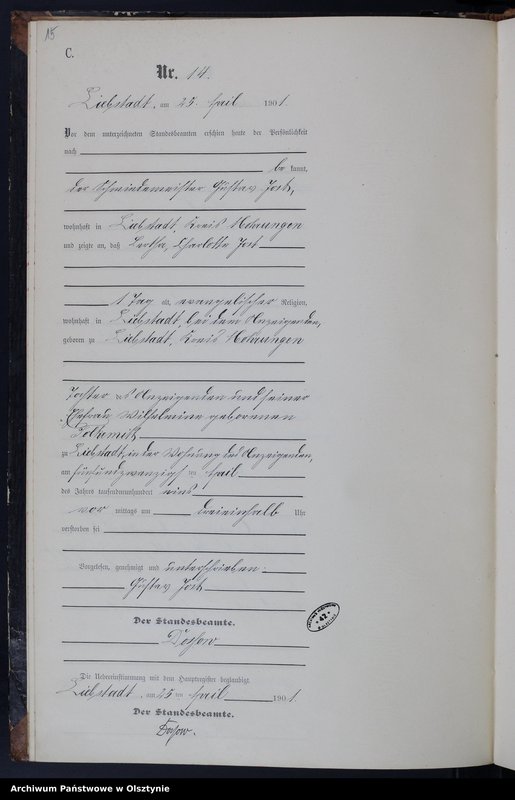 15
C.
Nr. 14.
Liebstadt, am 25. April 1901.
Vor dem unterzeichneten Standesbeamten erschien heute der Persönlichkeit
nach
be kannt,
der Schmiedemeister Gustav Jost,
wohnhaft in Liebstadt, Kreis Mohrungen
und zeigte an, daß Bertha, Charlotte Jost
1 Tag alt, evangelischer Religion,
wohnhaft in Liebstadt, bei dem Anzeigenden,
geboren zu Liebstadt, Kreis Mohrungen
Tochter des Anzeigenden und seiner
Ehefrau Wilhelmine geborenen
zu Liebstadt, in der Wohnung des Anzeigenden,
am fünfundzwanzigsten April
des Jahres tausendneunhundert eins
vor mittags um dreieinhalb Uhr
verstorben sei
Vorgelesen, genehmigt und unterschrieben.
Gustav Jost
Der Standesbeamte.
Die Uebereinstimmung mit dem Hauptregister beglaubigt
Liebstadt, am 25 ten April 1901.
Der Standesbeamte.
Archiwum Państwowe w Olsztynie